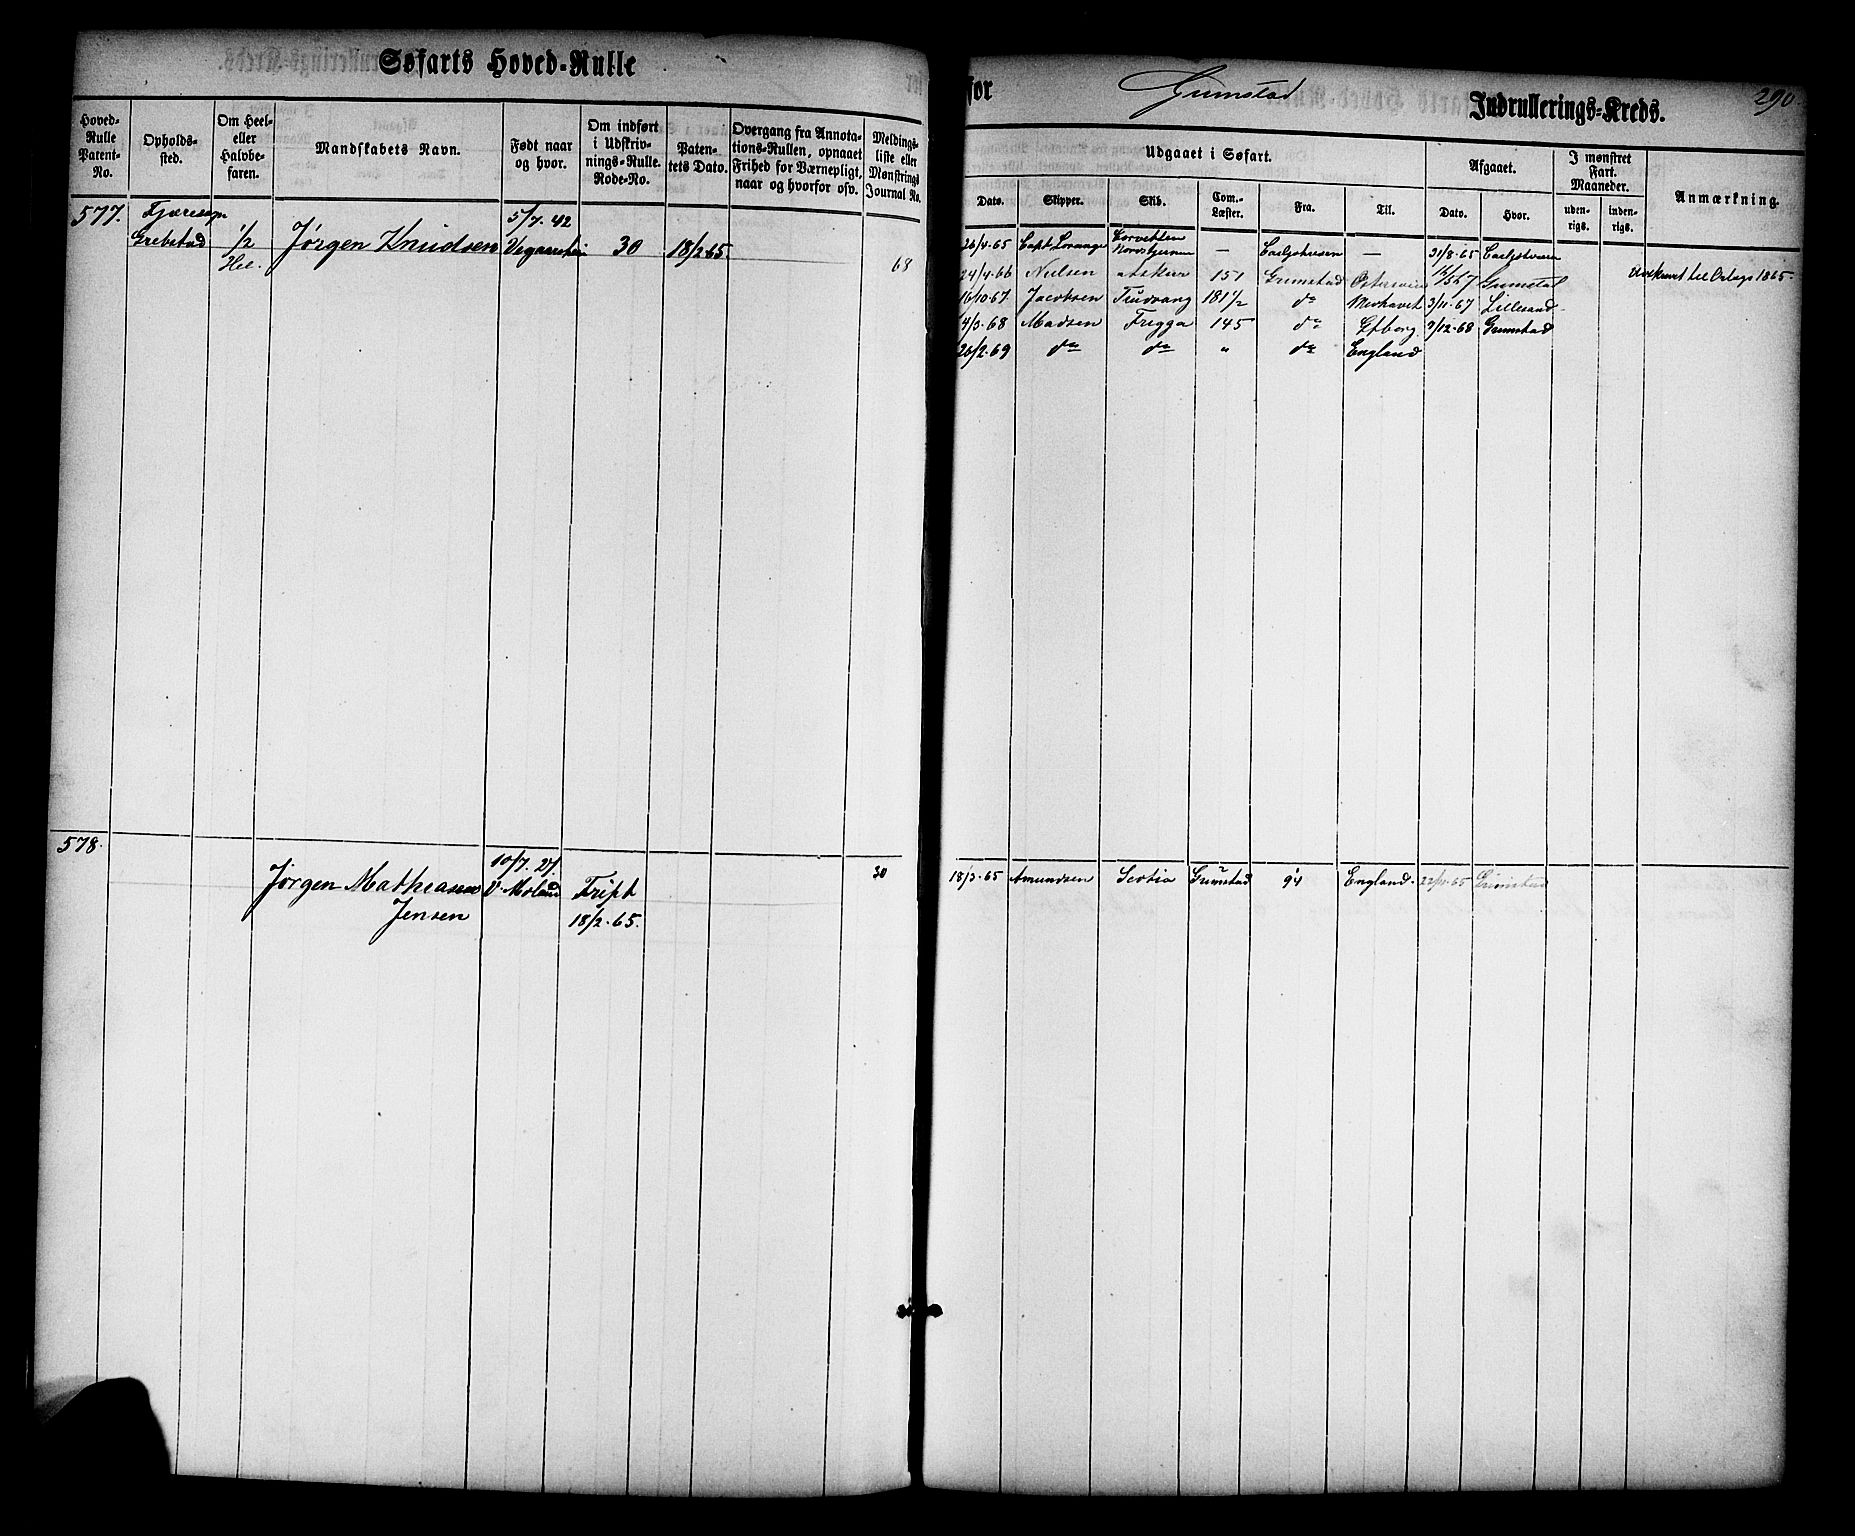 Søfarts Hoved-Rulle
for Grimstad Indrullerings-Kreds.
290.
Hoved-Rulle Patent-No.
Opholds-sted.
Om Heel- eller Halvbe-faren.
Mandskabets Navn.
Født naar og hvor.
Om indført i Udskriv-nings-Rulle. Rode-No.
Paten-tets Dato.
Overgang fra Annota-tions-Rullen, opnaaet Frihed for Værnepligt, naar og hvorfor osv.
Meldings-liste eller Mønstrings Journal No.
Udgaaet i Søfart.
Afgaaet.
I mønstret Fart. Maaneder.
Anmærkning.
Dato. Skipper. Skib. Com.-Læster. Fra. Til. Dato. Hvor. uden-rigs. inden-rigs.
577. Fjæresogn 5/7. 42
Grebstad 1/2 Jørgen Knudsen 30 18/2 65.
Hel. 68
26/4.65 Capt. Corvetten
Nordstjernen — Carljohnsvern — 31/8.65 Carljohnsvern
24/4.66 Nielsen 151 Grimstad Østersøen Grimstad Udskrevet til Orlogs 1865.
16/10.67. Jacobsen Trudvang 181 1/2 do 3/11.67 Lillesand.
4/3.68 Madsen Frigga 145 do 7/12.68 Grimstad
26/2.69 do do " do England
578.
Jørgen Mathiasen 10/7. 27. Fript 30
Jensen V. Moland 18/2.65.
18/3.65 Amundsen Scotia Grimstad 94 England. 22/11.65 Grimstad